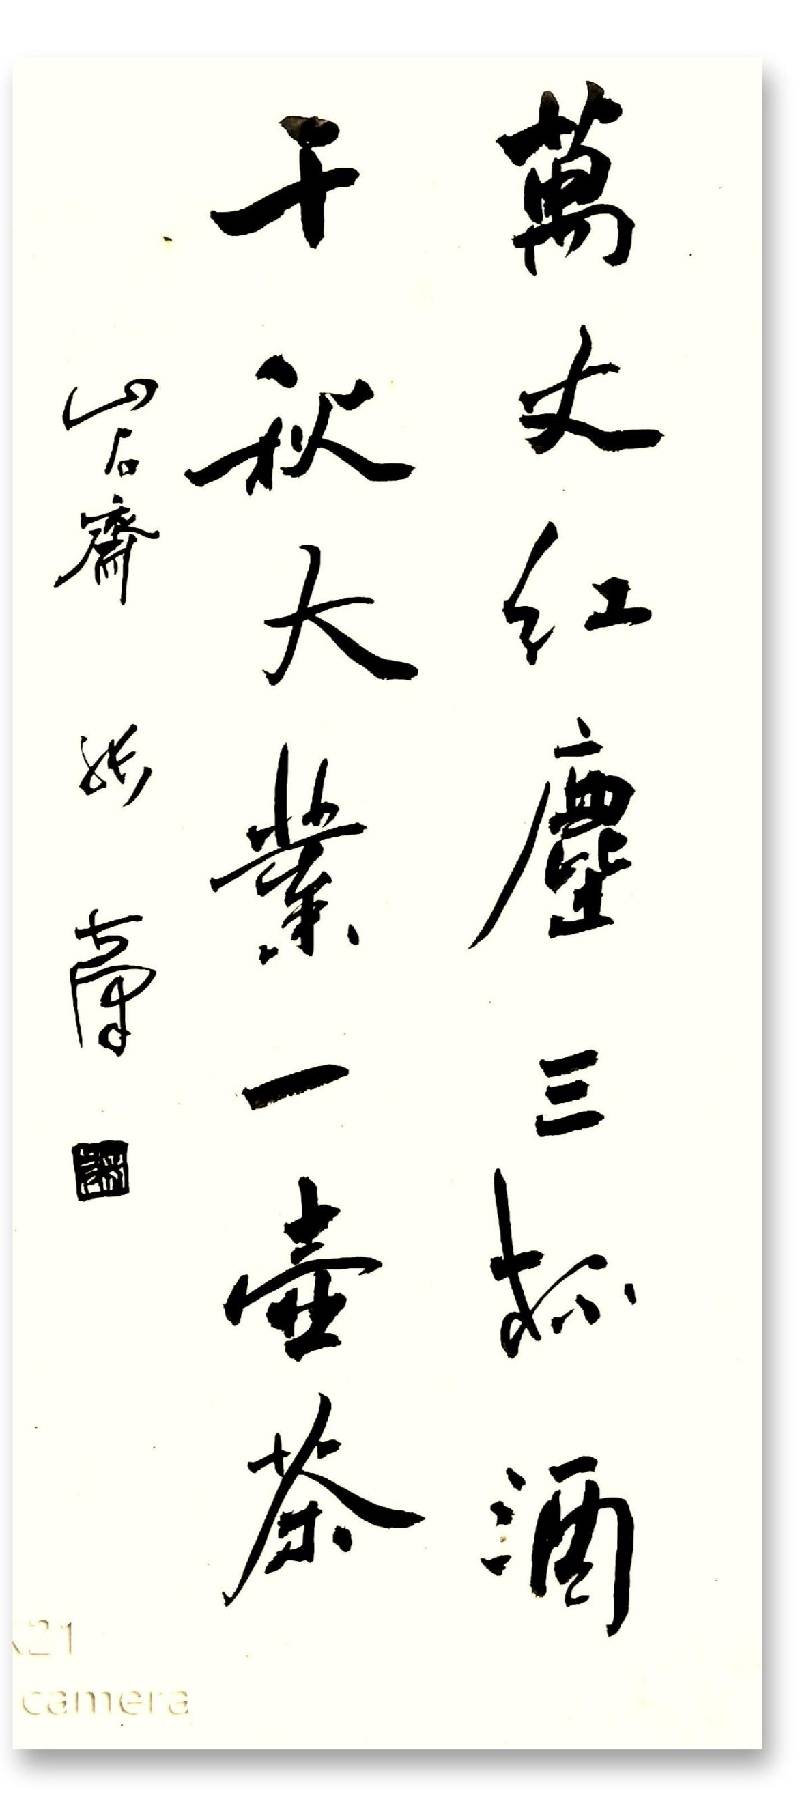 萬丈红塵三杯酒
千秋大業一壺茶
岩石齋 张
x21
camera